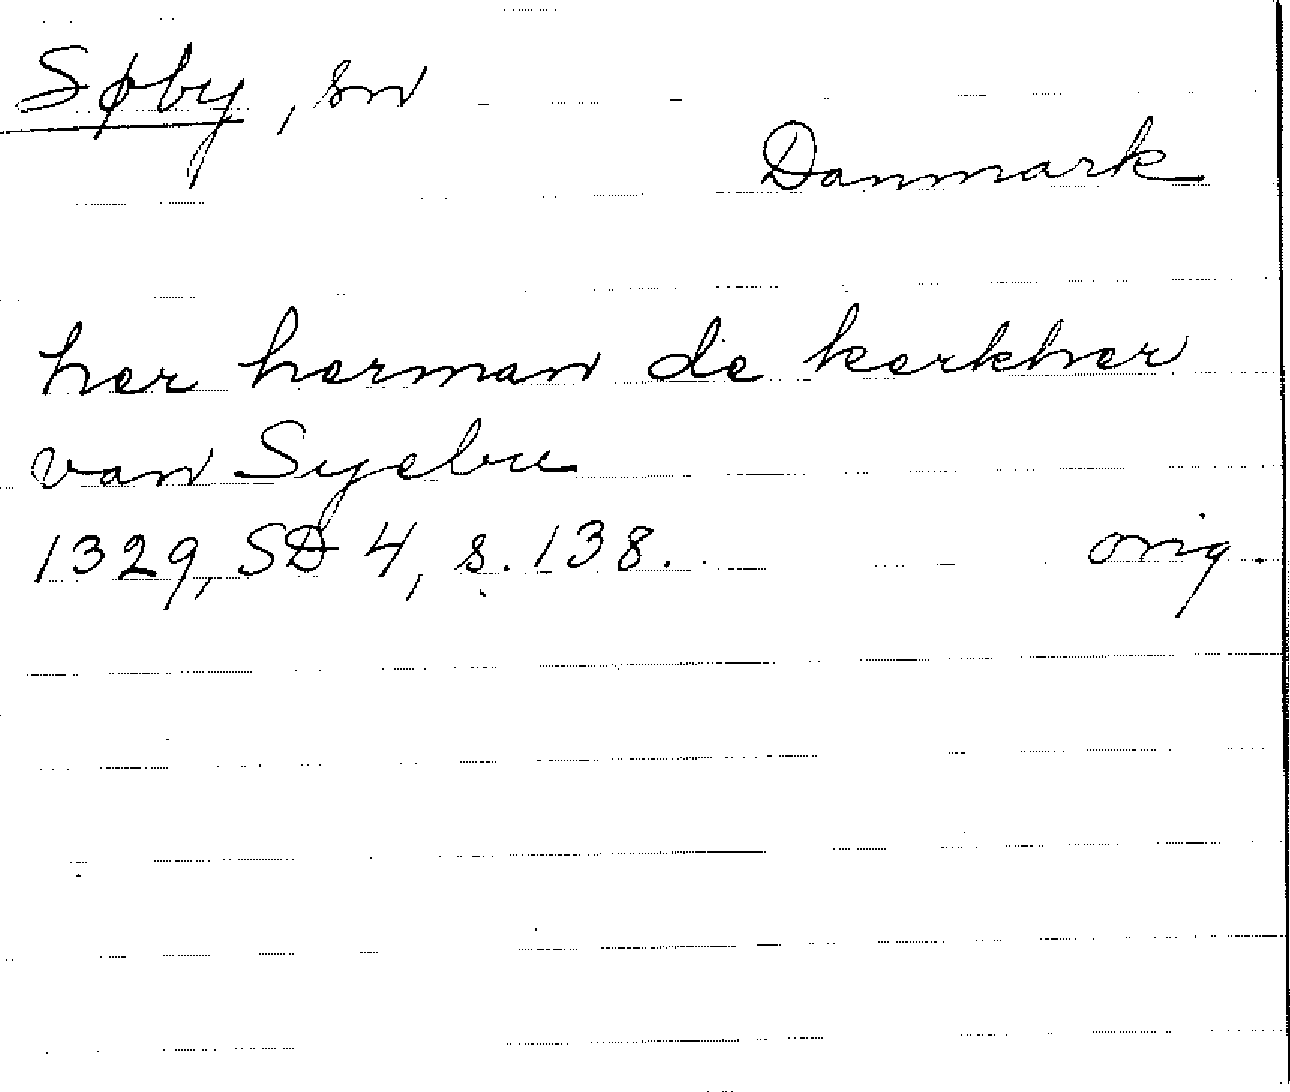 Søby, sn
Danmark
her herman de kerkher
van Syebu
1329, SD 4, s. 138. orig.